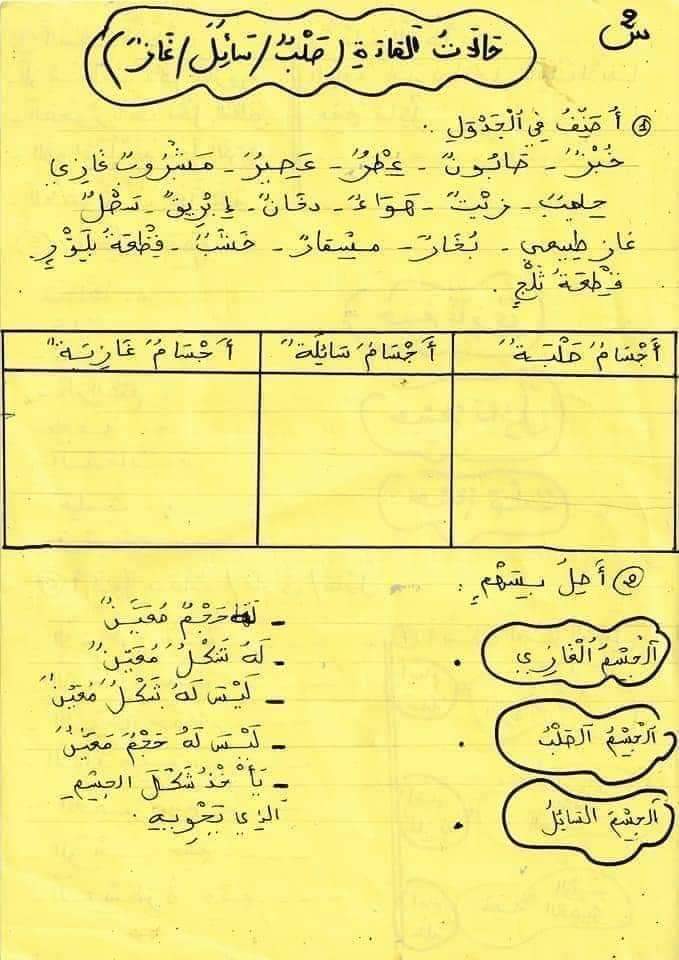 حَالَاتُ الْمَادَةِ (صَلْبٌ / سَائِلٌ / غَازٌ)
① أُصَنِّفُ فِي الْجَدْوَلِ .
خُبْزٌ - صَابُونٌ - عِطْرٌ - عَصِيرٌ - مَشْرُوبٌ غَازِي
حليبٌ - زيْتٌ - هَوَاءٌ - دخَانٌ - إبْرِيقٌ -
غاز طبيعي - بُخَارٌ - مِسْمَارٌ - خَشَبٌ - قِطْعَةُ بَلَّوْرٍ
قِطْعَةُ ثَلْجٍ .
أَجْسَامٌ صَلْبَةٌ
أَجْسَامٌ سَائِلَةٌ
أَجْسَامٌ غَازِيَةٌ
② أَصِلُ بِسَهْمٍ :
اَلْجِسْمُ الْغَازِي
اَلْجِسْمُ الصَلْبُ
اَلْجِسْمُ السَائِلُ
- لَهُ حَجْمٌ مُعَيَّنٌ
- لَهُ شَكْلٌ مُعَيَّنٌ
- لَيْسَ لَهُ شَكْلٌ مُعَيَّنٌ
- لَيْسَ لَهُ حَجْمٌ مُعَيَّنٌ
- يَأْخُذُ شَكْلَ الجِسْمِ
الذِي يَحْوِيهِ .